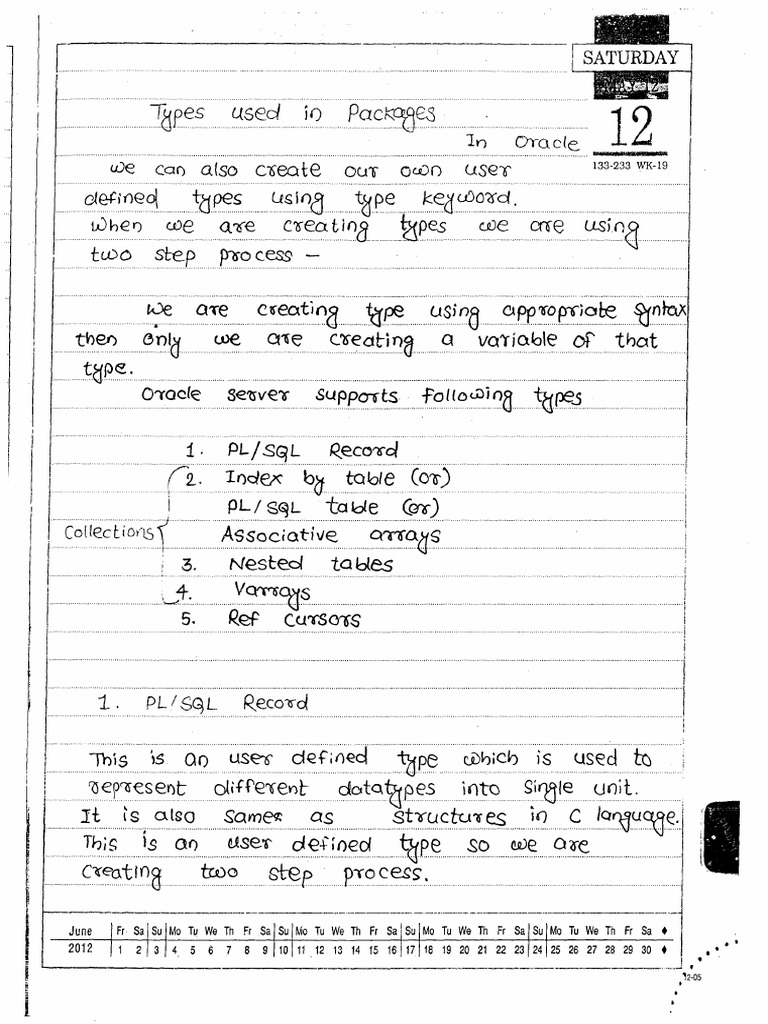 SATURDAY
MAY 12
12
133-233 WK-19
Types used in Packages
In Oracle
we can also create our own user
defined types using type keyword.
When we are creating types we are using
two step process –
We are creating type using appropriate Syntax
then only we are creating a variable of that
type.
Oracle server supports following types
1. PL/SQL Record
2. Index by table (or)
PL/SQL table (or)
Collections
Associative arrays
3. Nested tables
4. Varrays
5. Ref cursors
1. PL/SQL Record
This is an user defined type which is used to
represent different datatypes into single unit.
It is also same as structures in C language.
This is an user defined type so we are
Creating two step process.
June Fr Sa Su Mo Tu We Th Fr Sa Su Mo Tu We Th Fr Sa Su Mo Tu We Th Fr Sa Su Mo Tu We Th Fr Sa
2012 1 2 3 4 5 6 7 8 9 10 11 12 13 14 15 16 17 18 19 20 21 22 23 24 25 26 27 28 29 30
12-05